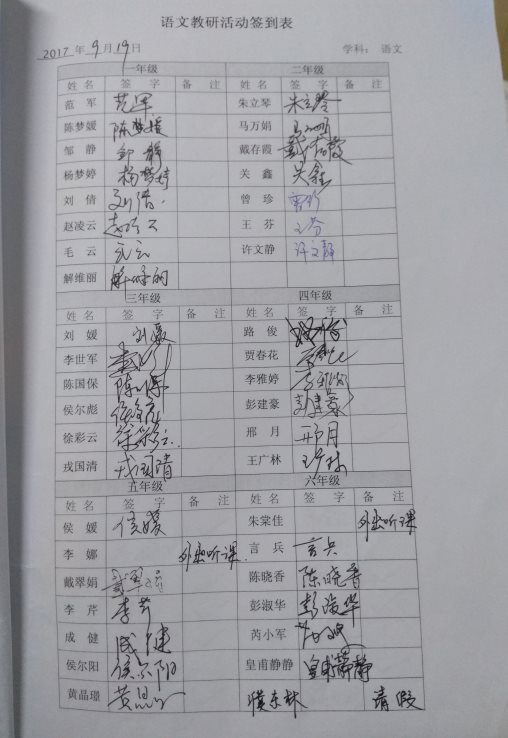 语文教研活动签到表
2017 年 9 月 19 日 学科： 语文
一年级 二年级
姓 名 签 字 备 注 姓 名 签 字 备 注
范 军 范军 朱立琴 朱立琴
陈梦媛 陈梦媛 马万娟
邹 静 邹静 戴存霞 戴存霞
杨梦婷 杨梦婷 关 鑫 关鑫
刘 倩 刘倩 曾 珍 曾珍
赵凌云 赵凌云 王 芬 王芬
毛 云 毛云 许文静 许文静
解维丽 解维丽
三年级 四年级
姓 名 签 字 备 注 姓 名 签 字 备 注
刘 媛 刘媛 路 俊
李世军 贾春花
陈国保 陈国保 李雅婷 李雅婷
侯尔彪 侯尔彪 彭建豪 彭建豪
徐彩云 徐彩云 邢 月 邢月
戎国清 戎国清 王广林 王广林
五年级 六年级
姓 名 签 字 备 注 姓 名 签 字 备 注
侯 媛 侯媛 朱棠佳 外出听课
李 娜 外出听课 言 兵 言兵
戴翠娟 戴翠娟 陈晓香 陈晓香
李 芹 李芹 彭淑华 彭淑华
成 健 成健 芮小军
侯尔阳 侯尔阳 皇甫静静 皇甫静静
黄晶璟 请假